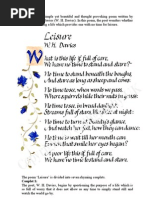 mple yet beautiful and thought provoking poem written by
W. H. Davies). In the poem, the poet wonders whether
a life which provides one with no time for leisure.
Leisure
W.H. Davies
What is this life if, full of care,
We have no time to stand and stare?
No time to stand beneath the boughs
And stare as long as sheep or cows.
No time to see, when woods we pass,
Where squirrels hide their nuts in grass.
No time to see, in broad daylight,
Streams full of stars, like skies at night.
No time to turn at Beauty's glance,
And watch her feet, how they can dance.
No time to wait till her mouth can
Enrich that smile her eyes began.
A poor life this if, full of care,
We have no time to stand and stare.
The poem 'Leisure' is divided into seven rhyming couplets.
Couplet 1:
The poet, W. H. Davies, began by questioning the purpose of a life which
is full of worries that it does not allow us any time to simply stand still and stare at
the world go by.